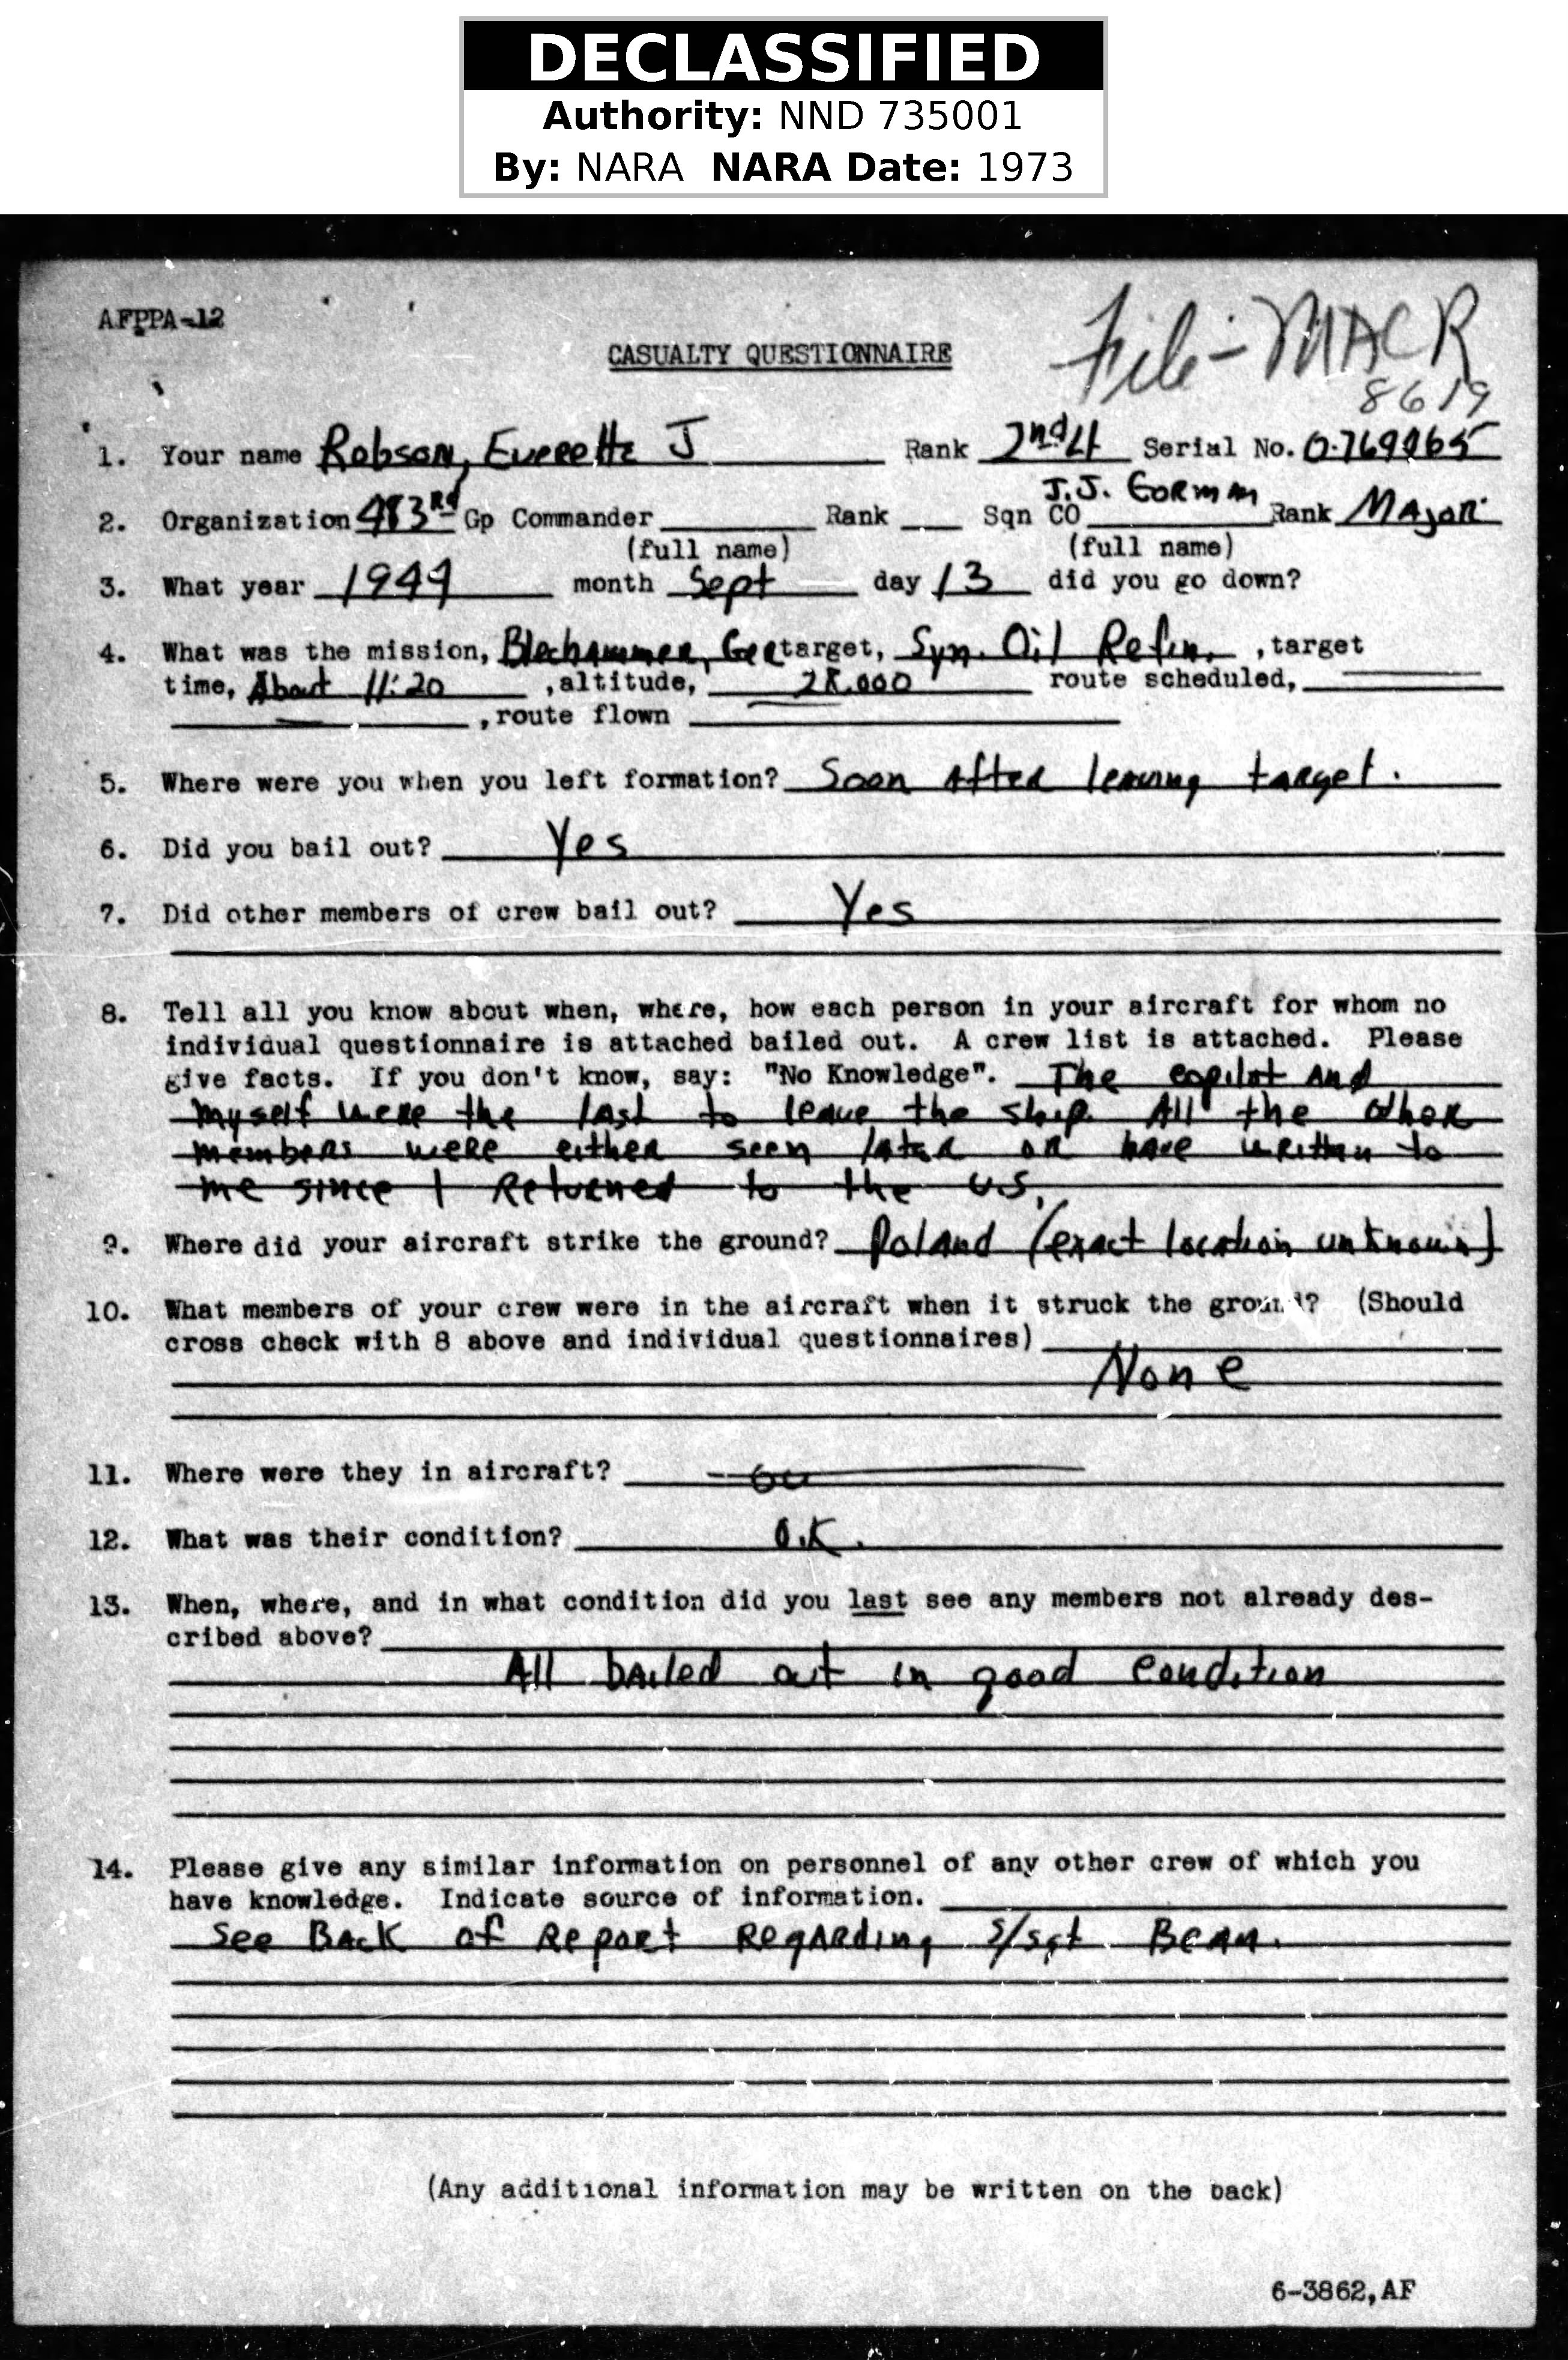 DECLASSIFIED
Authority: NND 735001
By: NARA NARA Date: 1973
AFPPA-12
File - MACR
8619
CASUALTY QUESTIONNAIRE
1. Your name Robson, Everette J Rank 2nd Lt Serial No.
J.J. Gorman
2. Organization 483rd Gp Commander Rank Sqn CO Rank Major
(full name) (full name)
3. What year 1944 month Sept day 13 did you go down?
4. What was the mission, Blechammer, Ger target, Syn. Oil Refin. ,target
time, About 11:20 ,altitude, 28.000 route scheduled,
,route flown
5. Where were you when you left formation? Soon After leaving target.
6. Did you bail out? Yes
7. Did other members of crew bail out? Yes
8. Tell all you know about when, where, how each person in your aircraft for whom no
individual questionnaire is attached bailed out. A crew list is attached. Please
give facts. If you don't know, say: "No Knowledge". The copilot and
myself were the last to leave the ship. All the other
members were either seen later or have written to
me since I Returned to the U.S.
9. Where did your aircraft strike the ground? Poland (exact location unknown)
10. What members of your crew were in the aircraft when it struck the ground? (Should
cross check with 8 above and individual questionnaires)
None
11. Where were they in aircraft?
12. What was their condition? O.K.
13. When, where, and in what condition did you last see any members not already des-
cribed above?
All bailed out in good condition
14. Please give any similar information on personnel of any other crew of which you
have knowledge. Indicate source of information.
See Back of Report Regarding S/sgt Bean.
(Any additional information may be written on the back)
6-3862,AF